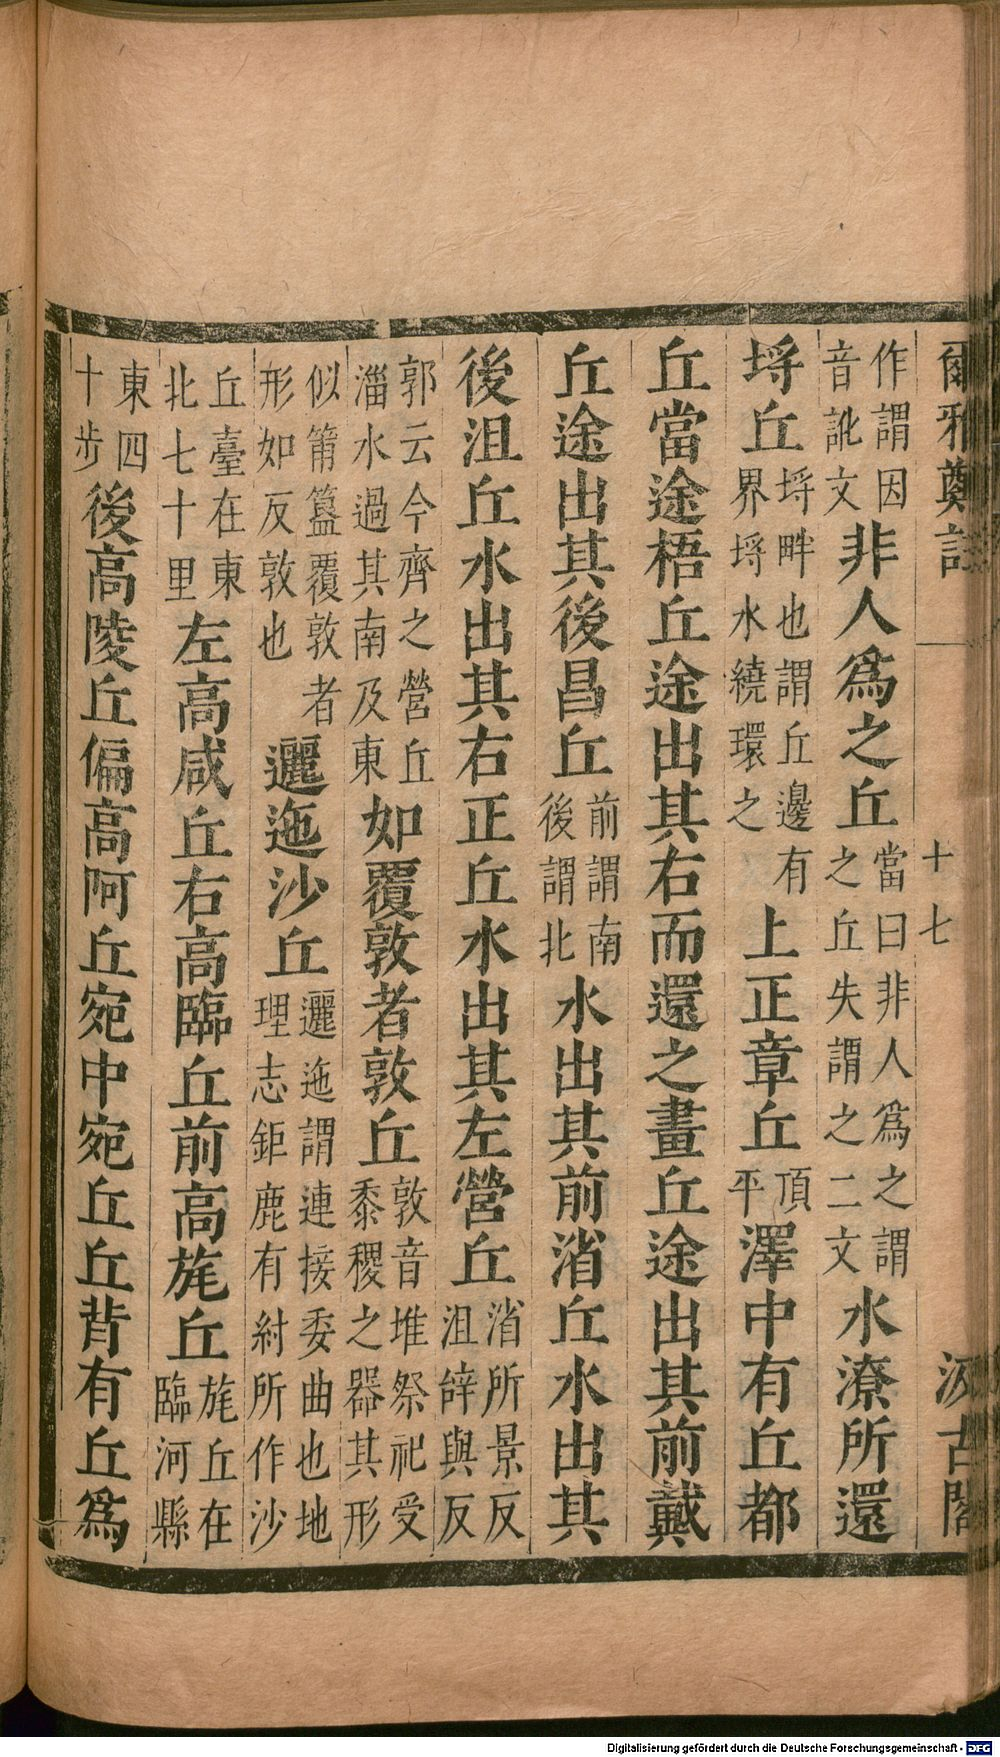 爾雅鄭註 十七 汲古閣
作謂因音訛文非人爲之丘當曰非人爲之謂之丘失謂之二文水潦所還
埒丘埒畔也謂丘邊有界埒水繞環之上正章丘頂平澤中有丘都
丘當途梧丘途出其右而還之畫丘途出其前戴
丘途出其後昌丘前謂南後謂北水出其前渻丘水出其
後沮丘水出其右正丘水出其左營丘渻所景反沮辝與反
郭云今齊之營丘淄水過其南及東如覆敦者敦丘敦音堆祭祀受黍稷之器其形
似簠簋覆敦者形如反敦也邐迤沙丘邐迤謂連接委曲也地理志鉅鹿有紂所作沙
丘臺在東北七十里左高咸丘右高臨丘前高旄丘旄丘在臨河縣
東四十步後高陵丘偏高阿丘宛中宛丘丘背有丘爲
Digitalisierung gefördert durch die Deutsche Forschungsgemeinschaft - DFG